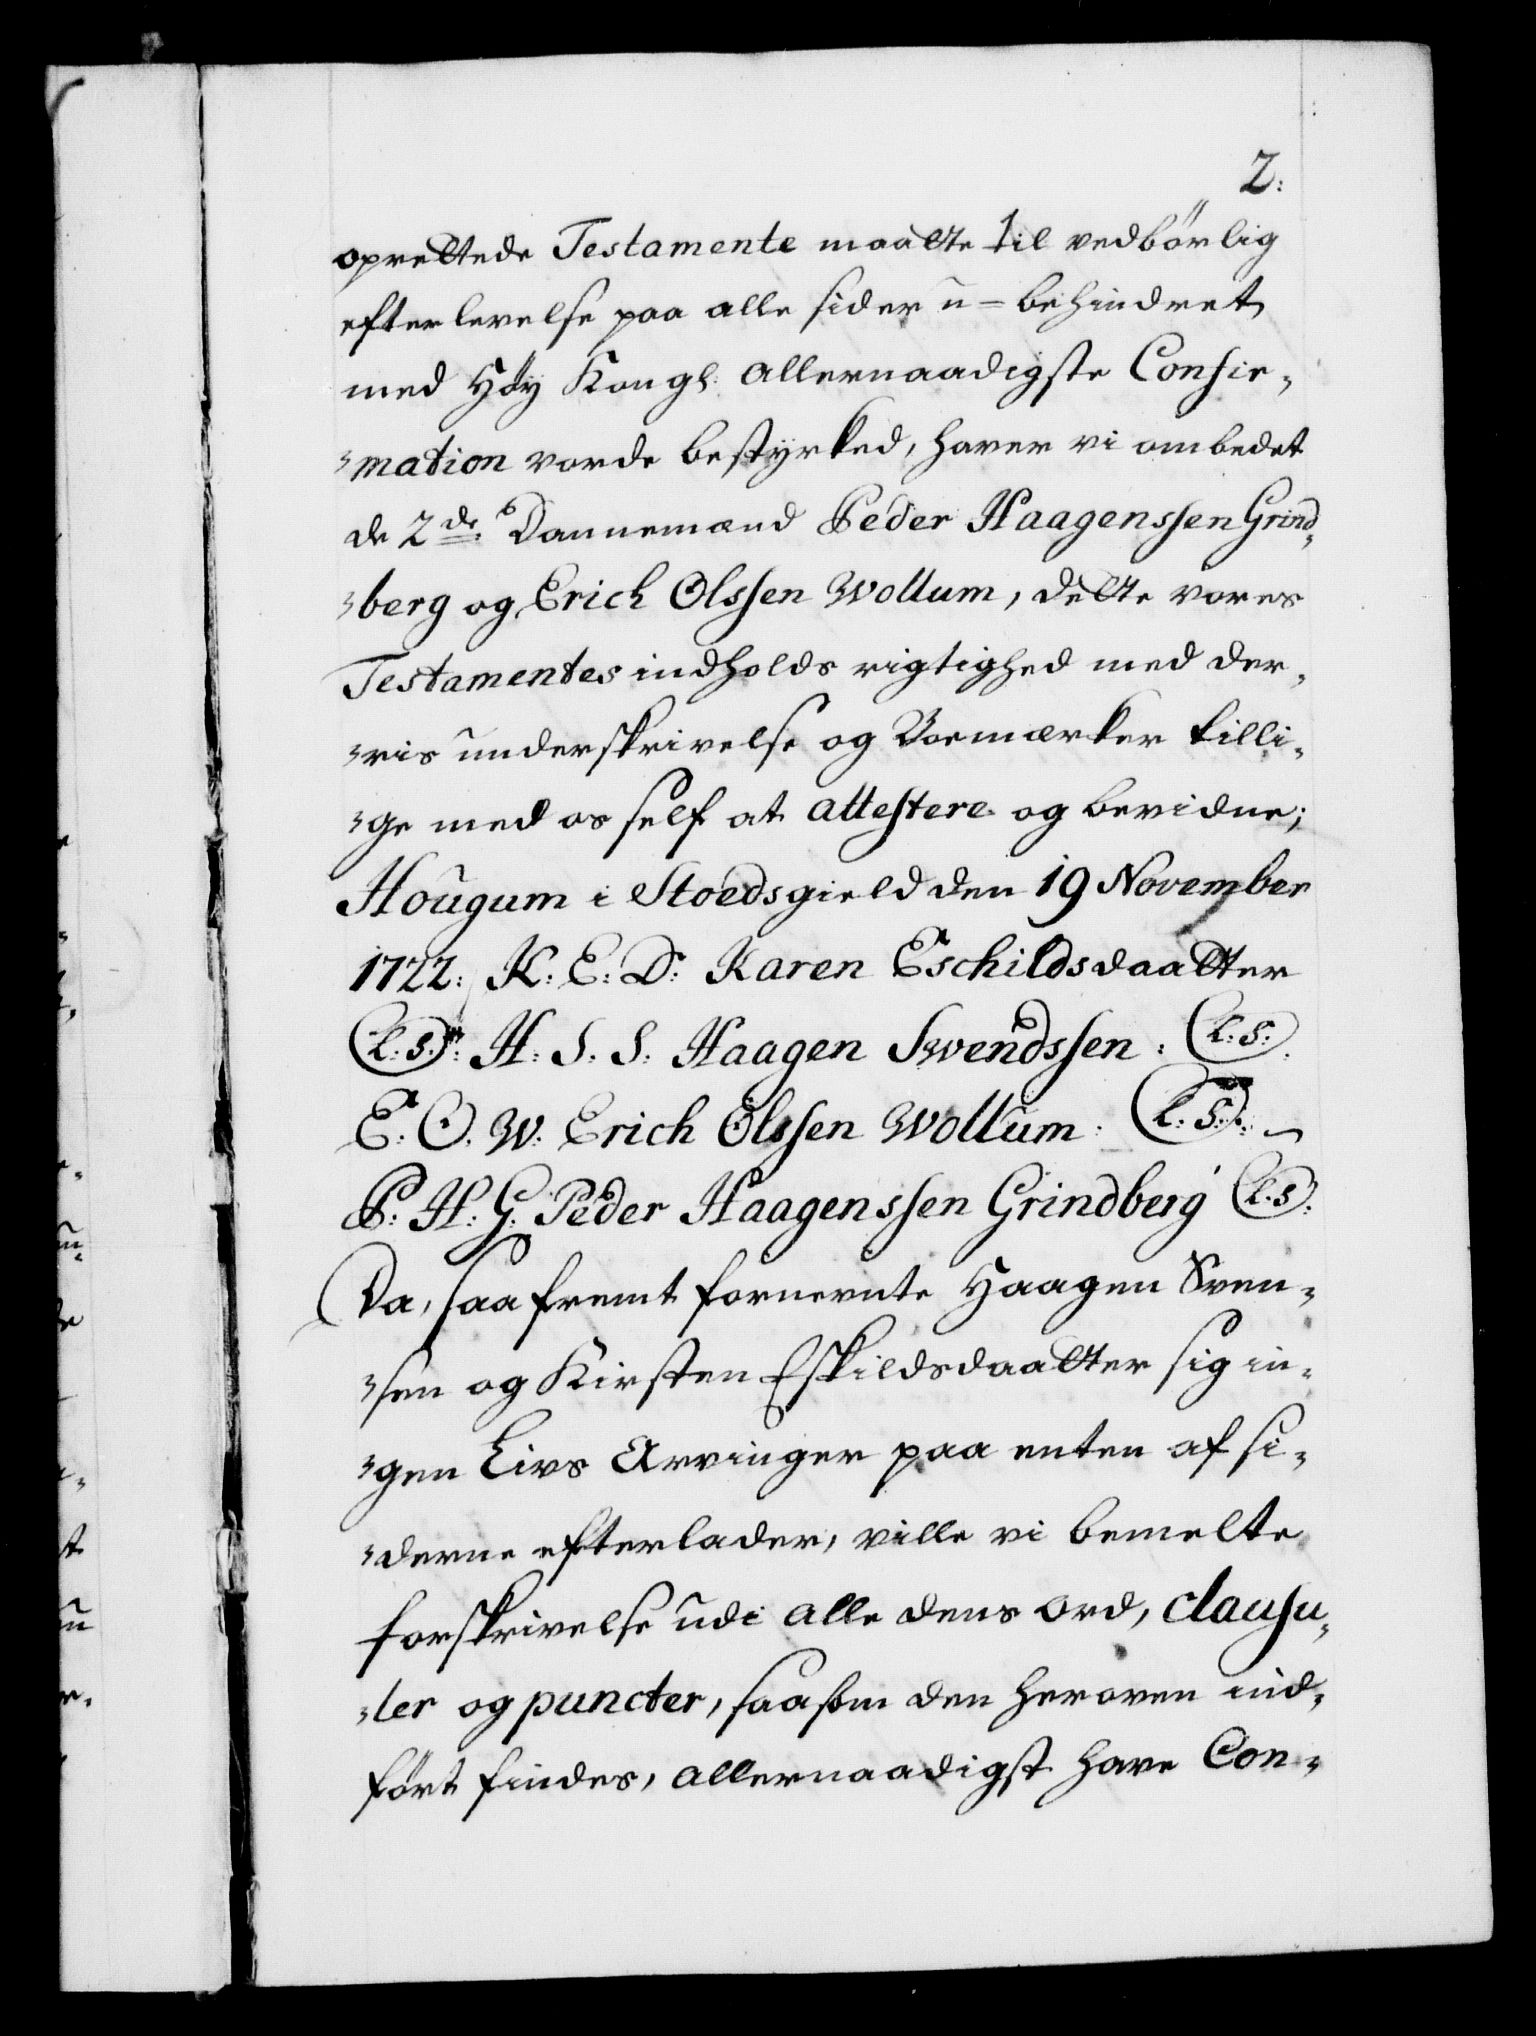 2:
oprettede Testamente maatte til vedbörlig
efterlevelse paa alle sider u=behindret
med Höy Kongl: allernaadigste Confir„
„mation vorde bestyrked, haver vi ombedet
de 2de Dannemænd Peder Haagenssen Grind„
„berg og Erich Olssen Wollum, dette vores
Testamentes indholds rigtighed med der„
„ris underskrivelse og Boemærker tilli„
„ge med os self at attestere og bevidne;
Hougum i Stoedsgield den 19 November
1722: K: E: D: Karen Eschildsdaatter
(L.S.): H: S. S: Haagen Swendssen: (L:S:).
E: O. W: Erich Olssen Wollum: (L.S.):
P: H: G: Peder Haagenssen Grindberg (L.S):
Da, saafremt fornevnte Haagen Sven„
„sen og Kirsten Eskildsdaatter sig in„
„gen Livs Arvinger paa enten af si„
„derne efterlader, ville vi bemelte
forskrivelse udi alle dens ord, clausu„
„ler og puncter, saasom den heroven ind„
fört findes, allernaadigst have Con„